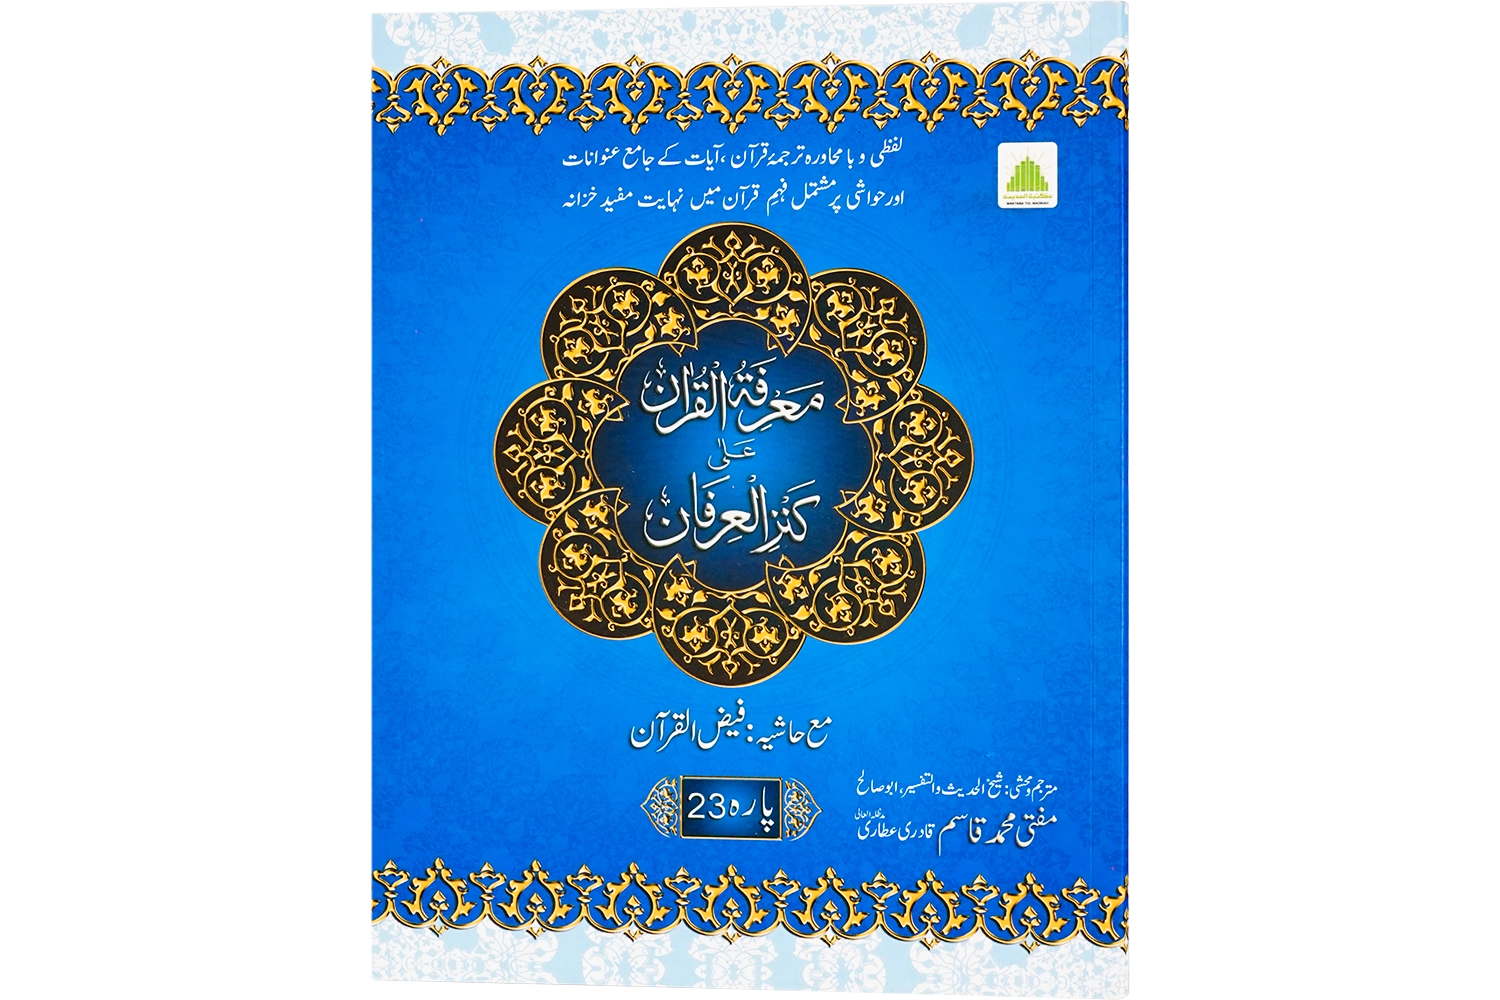 لفظی و با محاورہ ترجمۂ قرآن، آیات کے جامع عنوانات
اور حواشی پر مشتمل فہمِ قرآن میں نہایت مفید خزانہ
مکتبۃ المدینہ
MAKTABA TUL MADINAH
مَعْرِفَۃُ الْقُرْاٰن
عَلٰی
کَنْزِ الْعِرفَان
مع حاشیہ: فیض القرآن
پارہ 23
مترجم و محشی: شیخ الحدیث والتفسیر، ابو صالح
مفتی محمد قاسم قادری عطاری مدظلہ العالی